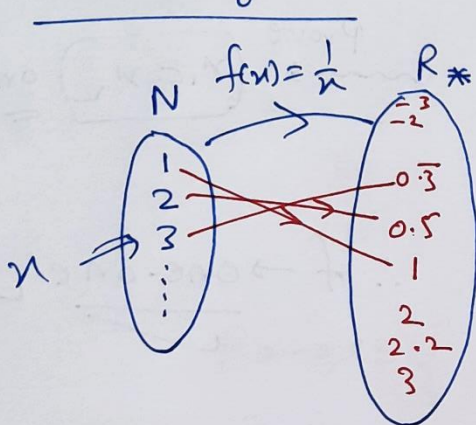 f(x) = 1/x
N
R*
-3
-2
1
2
3
⋮
x
0.3̅
0.5
1
2
2.2
3